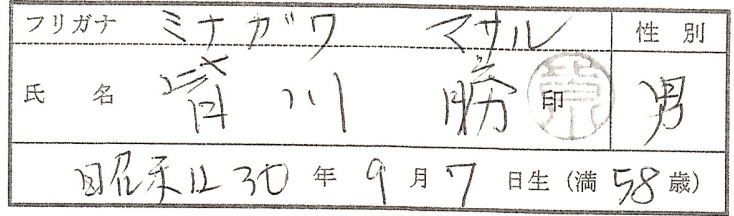 フリガナ ミナガワ マサル 性別
氏名 皆川 勝 印 男
昭和30年9月7日生（満58歳）